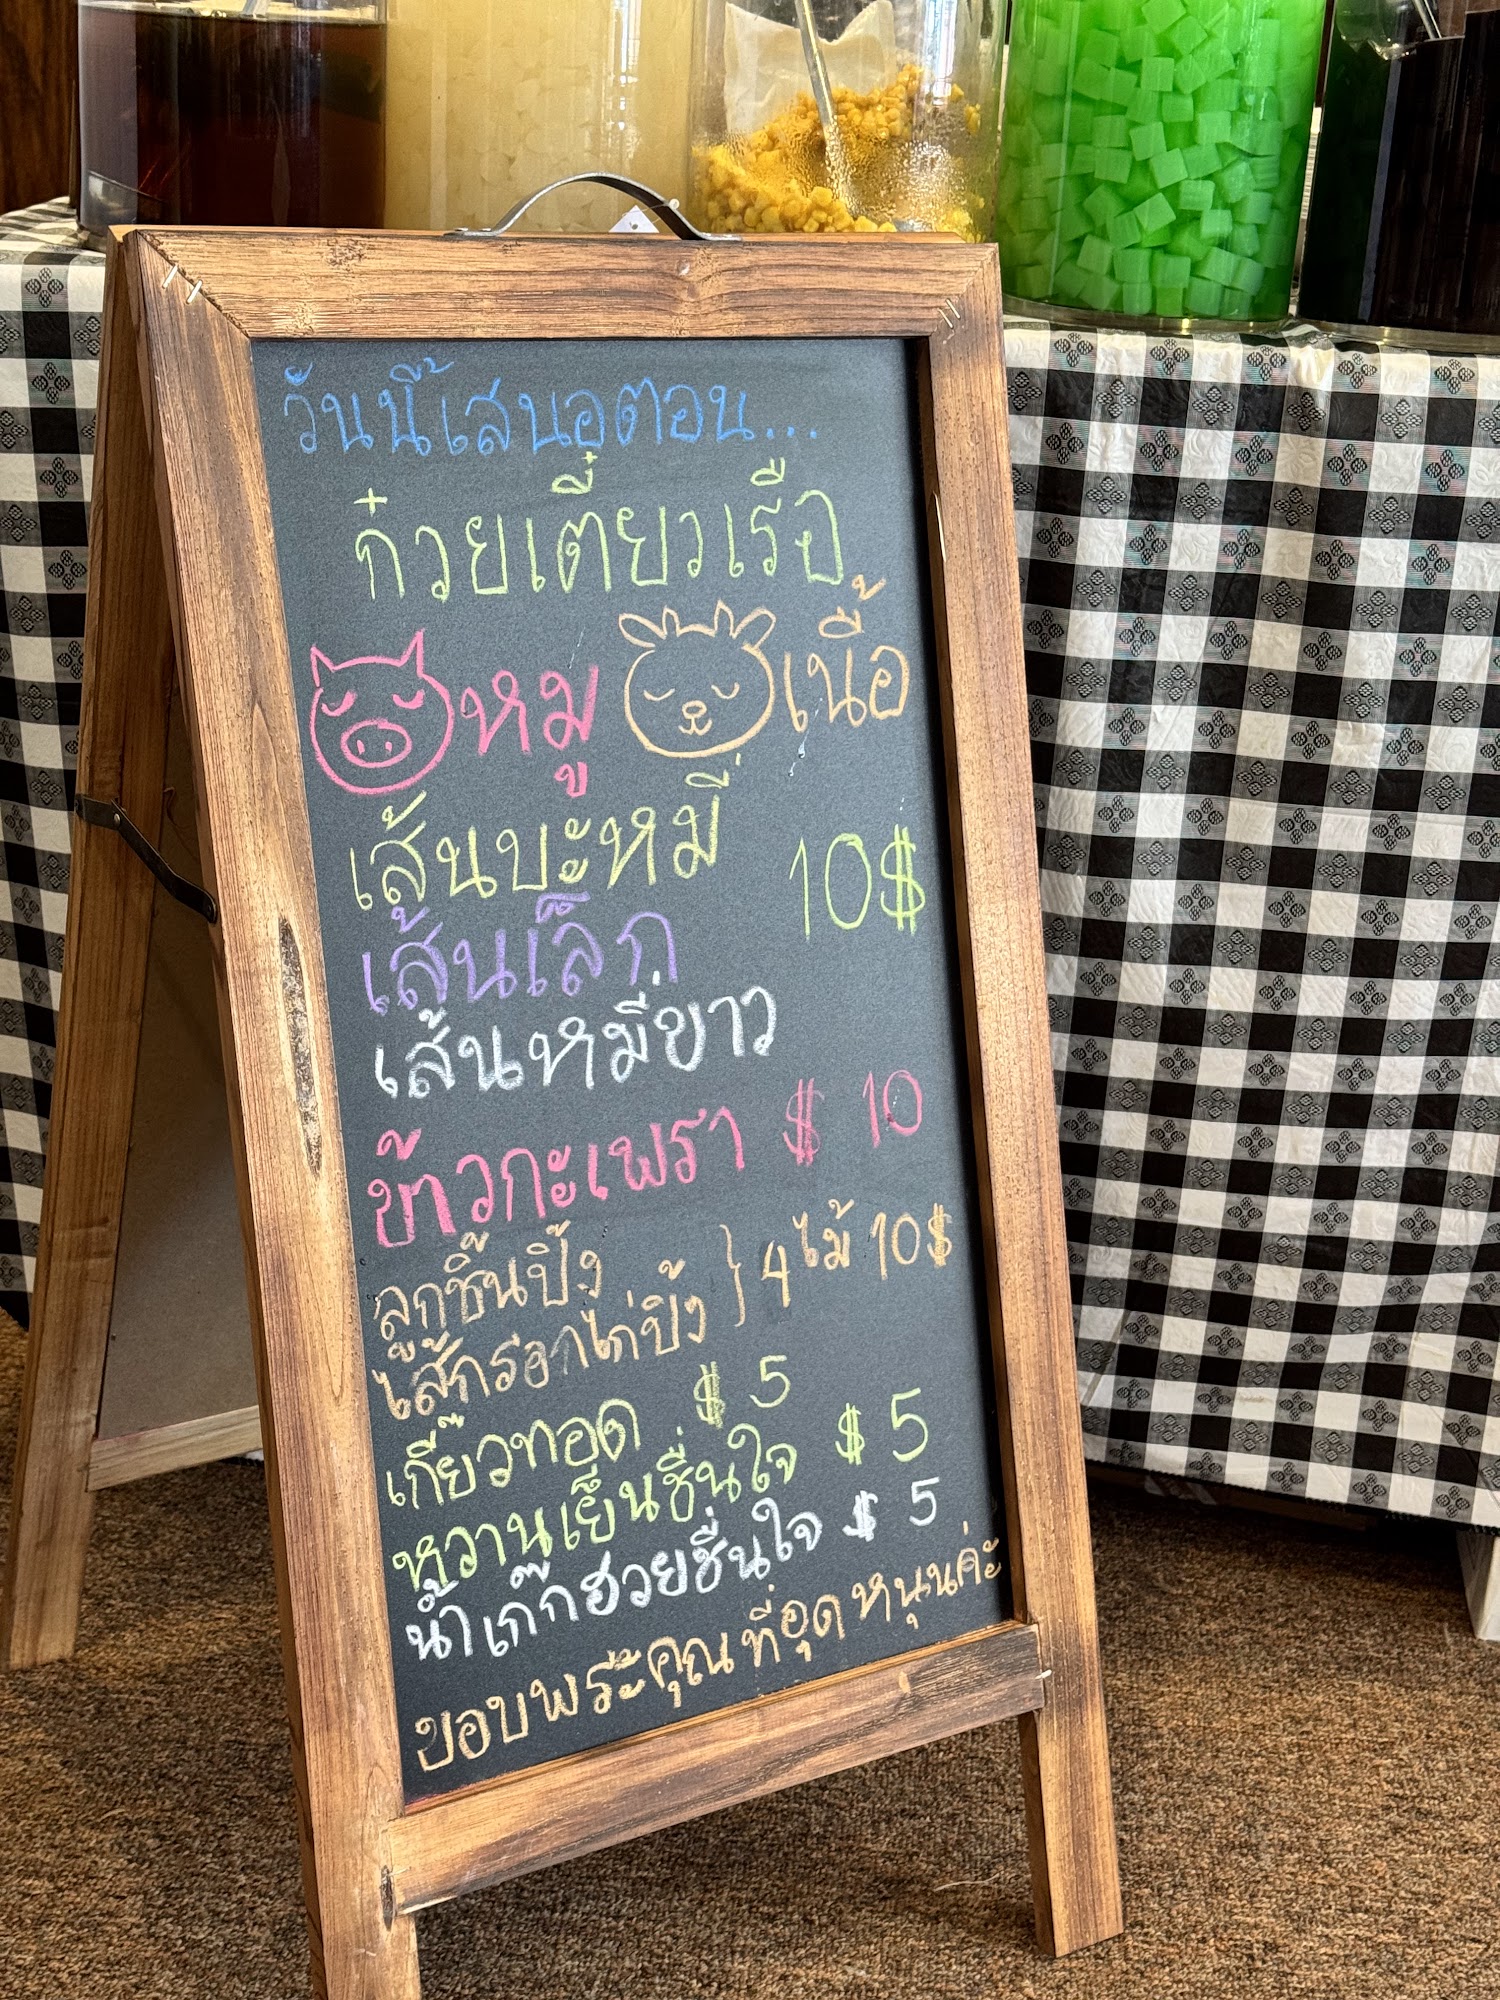 วันนี้เสนอตอน...
ก๋วยเตี๋ยวเรือ
หมู เนื้อ
เส้นบะหมี่
10$
เส้นเล็ก
เส้นหมี่ขาว
ข้าวกะเพรา $ 10
ลูกชิ้นปิ้ง
ไส้กรอกไก่ปิ้ง } 4 ไม้ 10$
เกี๊ยวทอด $ 5
หวานเย็นชื่นใจ $ 5
น้ำเก๊กฮวยชื่นใจ $ 5
ขอบพระคุณที่อุดหนุนค่ะ